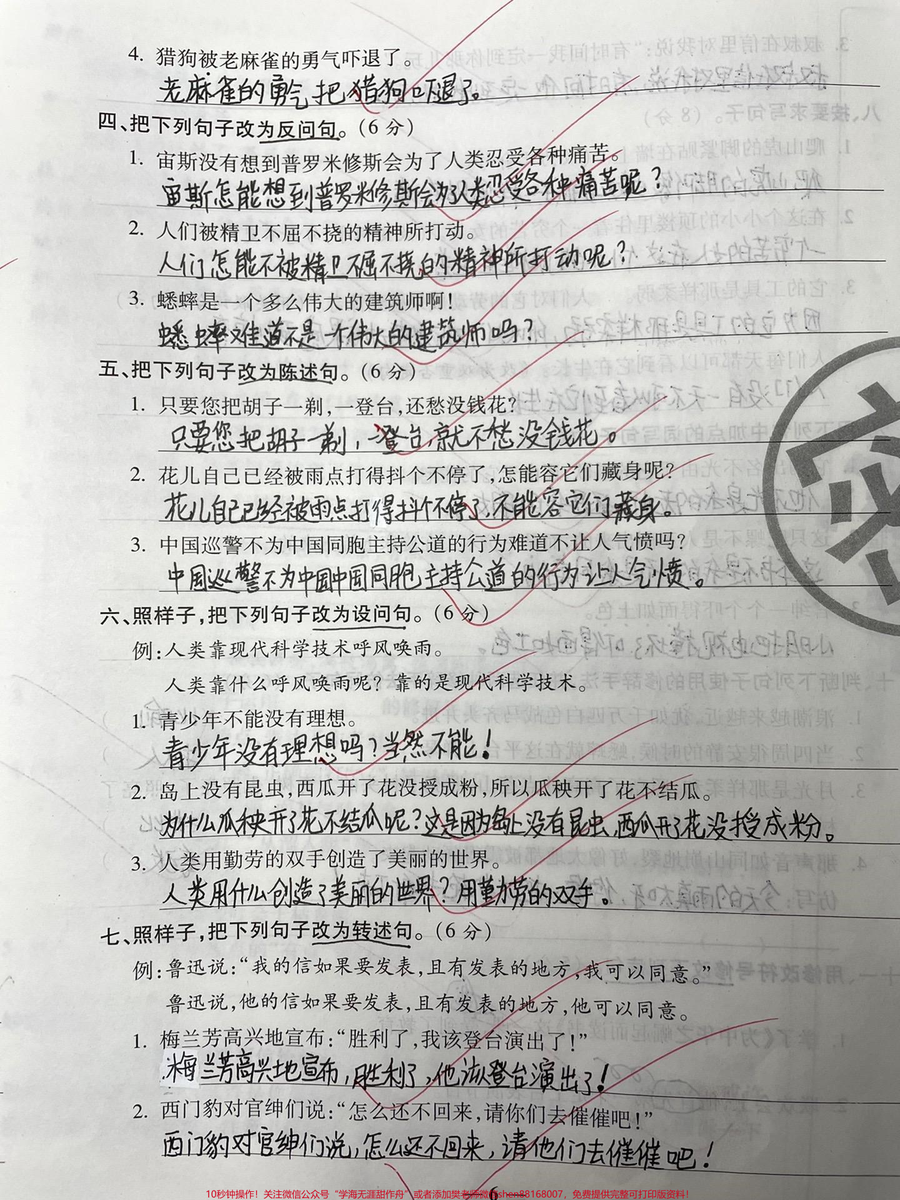 4. 猎狗被老麻雀的勇气吓退了。
老麻雀的勇气把猎狗吓退了。
四、把下列句子改为反问句。(6分)
1. 宙斯没有想到普罗米修斯会为了人类忍受各种痛苦。
宙斯怎能想到普罗米修斯会为人类忍受各种痛苦呢?
2. 人们被精卫不屈不挠的精神所打动。
人们怎能不被精卫不屈不挠的精神所打动呢?
3. 蟋蟀是一个多么伟大的建筑师啊!
蟋蟀难道不是一个伟大的建筑师吗?
五、把下列句子改为陈述句。(6分)
1. 只要您把胡子一剃,一登台,还愁没钱花?
只要您把胡子一剃,一登台,就不愁没钱花。
2. 花儿自己已经被雨点打得抖个不停了,怎能容它们藏身呢?
花儿自己已经被雨点打得抖个不停了,不能容它们藏身。
3. 中国巡警不为中国同胞主持公道的行为难道不让人气愤吗?
中国巡警不为中国中国同胞主持公道的行为让人气愤。
六、照样子,把下列句子改为设问句。(6分)
例:人类靠现代科学技术呼风唤雨。
人类靠什么呼风唤雨呢? 靠的是现代科学技术。
1. 青少年不能没有理想。
青少年没有理想吗?当然不能!
2. 岛上没有昆虫,西瓜开了花没授成粉,所以瓜秧开了花不结瓜。
为什么瓜秧开了花不结瓜呢?这是因为岛上没有昆虫,西瓜开了花没授成粉。
3. 人类用勤劳的双手创造了美丽的世界。
人类用什么创造了美丽的世界?用勤劳的双手。
七、照样子,把下列句子改为转述句。(6分)
例:鲁迅说:“我的信如果要发表,且有发表的地方,我可以同意。”
鲁迅说,他的信如果要发表,且有发表的地方,他可以同意。
1. 梅兰芳高兴地宣布:“胜利了,我该登台演出了!”
梅兰芳高兴地宣布,胜利了,他该登台演出了!
2. 西门豹对官绅们说:“怎么还不回来,请你们去催催吧!”
西门豹对官绅们说,怎么还不回来,请他们去催催吧!
6
密
10秒钟操作!关注微信公众号“学海无涯甜作舟”或者添加樊老师微信shen88168007,免费提供完整可打印版资料!